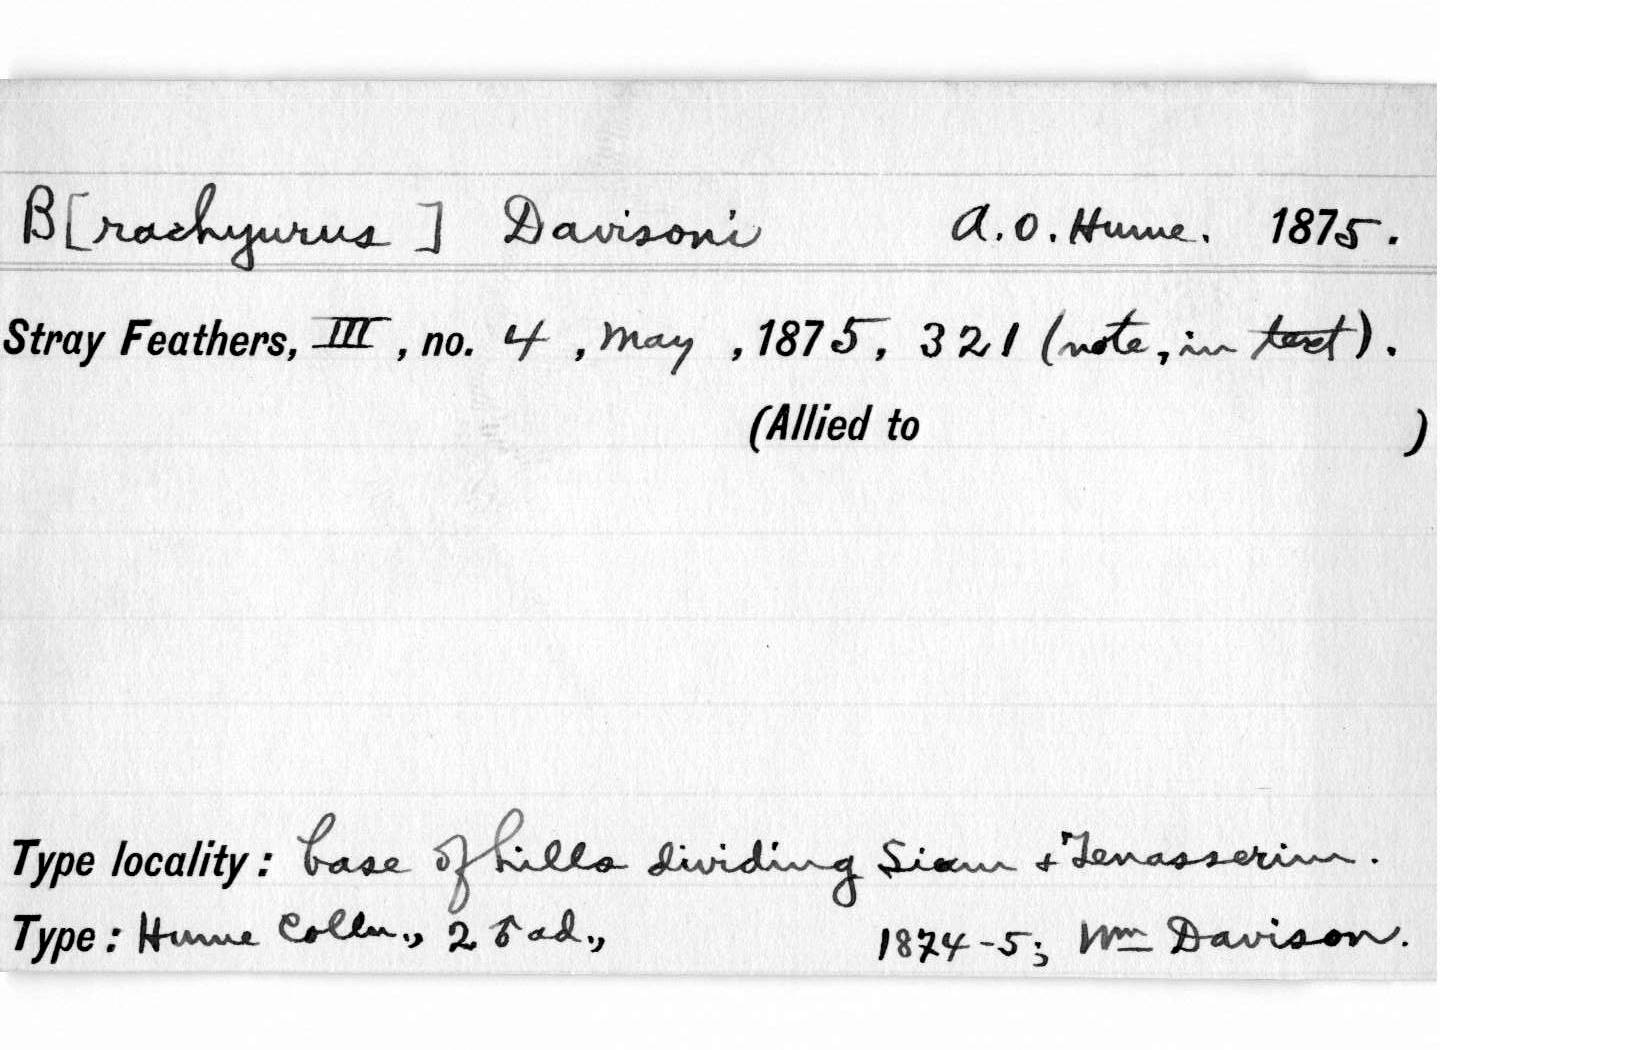 B[rachyurus ] Davisoni A. O. Hume. 1875.
Stray Feathers, III, no. 4, May, 1875, 321 (note, in text).
(Allied to )
Type locality: base of hills dividing Siam + Tenasserim.
Type: Hume Colln., 2 ♂ ad., 1874-5; Wm Davison.